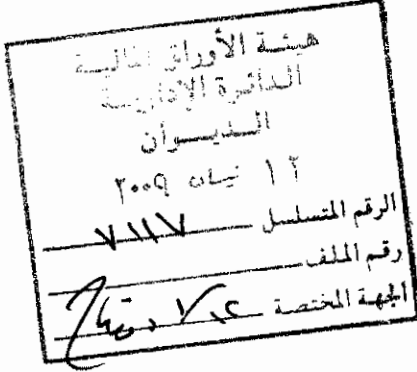 هيئة الأوراق المالية
الدائرة الإدارية
الديوان
١٢ نيسان ٢٠٠٩
الرقم المتسلسل ٧١١٧
رقم الملف
الجهة المختصة